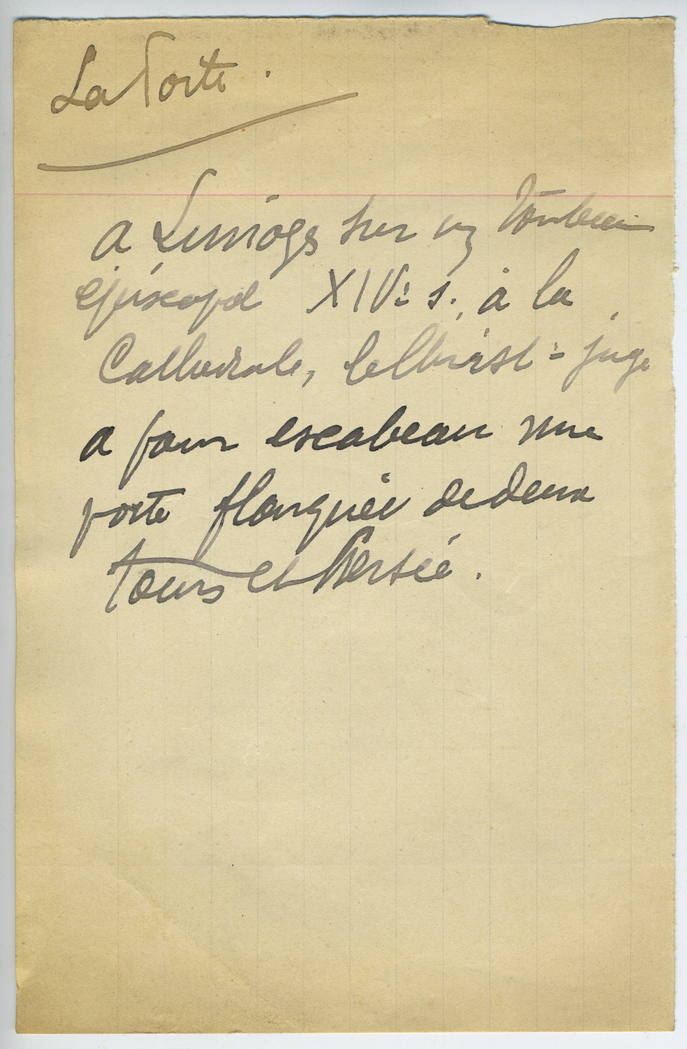 La Porte.
a Limoges sur un tombeau
épiscopal XIVe s., à la
Cathédrale, le Christ-juge
a pour escabeau une
porte flanquée de deux
tours et